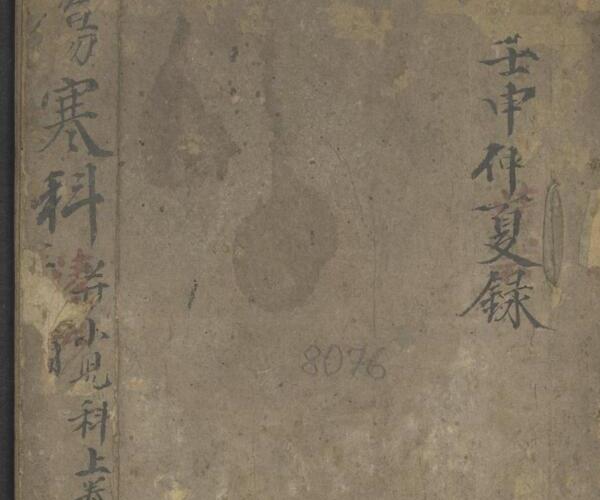 壬申仲夏録
傷寒科
并小児科上卷
8076